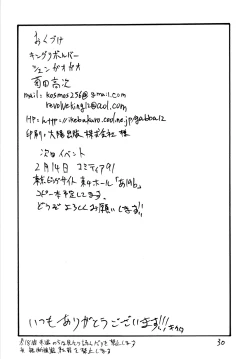 おくづけ
キングリボルバー
シェンガオガオ
mail: kosmos256@gmail.com
revolveking12@aol.com
HP= http://ikebukuro.cool.ne.jp/gabba12
印刷: 大陽出版 株式会社 様
次回イベント
2月14日 コミティア91
東京ビッグサイト 東4ホール「あ19b」
コピー本予定してます。
どうぞよろしくお願いします!!
いつもありがとうございます!!!
30